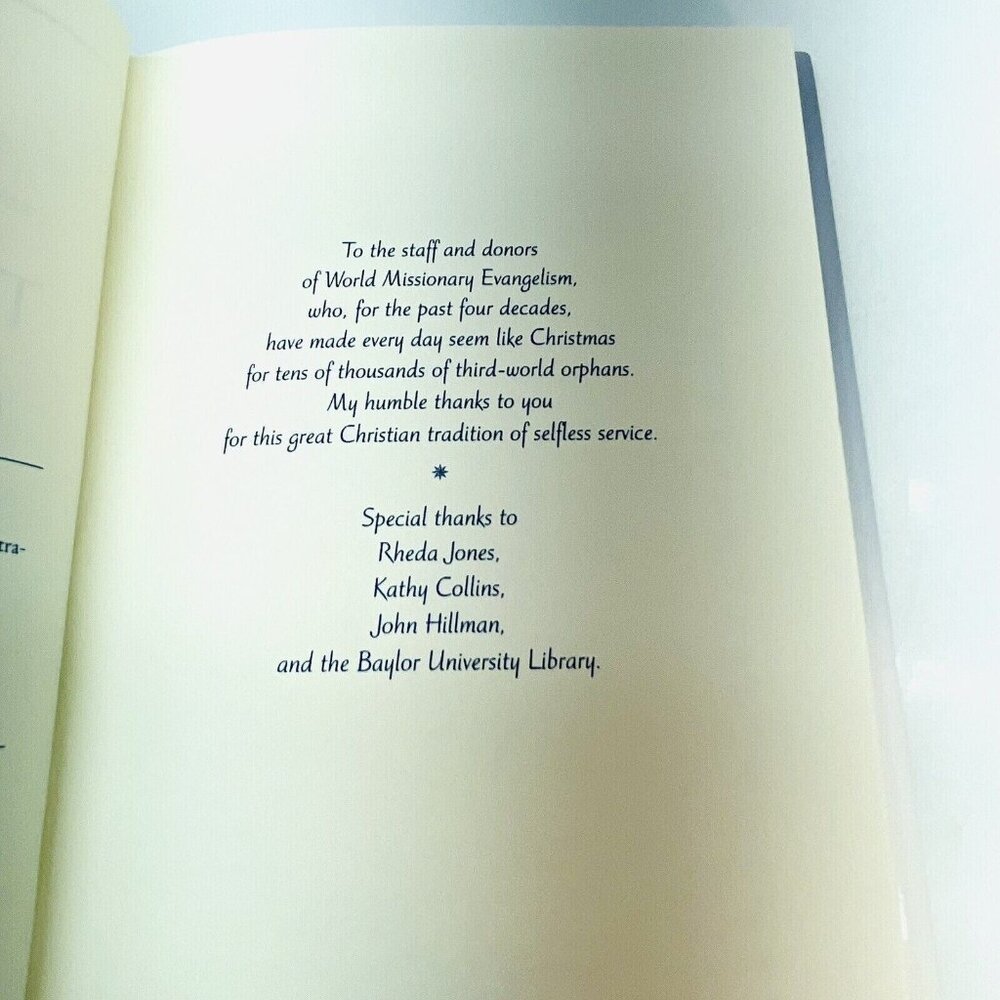 tra-
To the staff and donors
of World Missionary Evangelism,
who, for the past four decades,
have made every day seem like Christmas
for tens of thousands of third-world orphans.
My humble thanks to you
for this great Christian tradition of selfless service.
Special thanks to
Rheda Jones,
Kathy Collins,
John Hillman,
and the Baylor University Library.